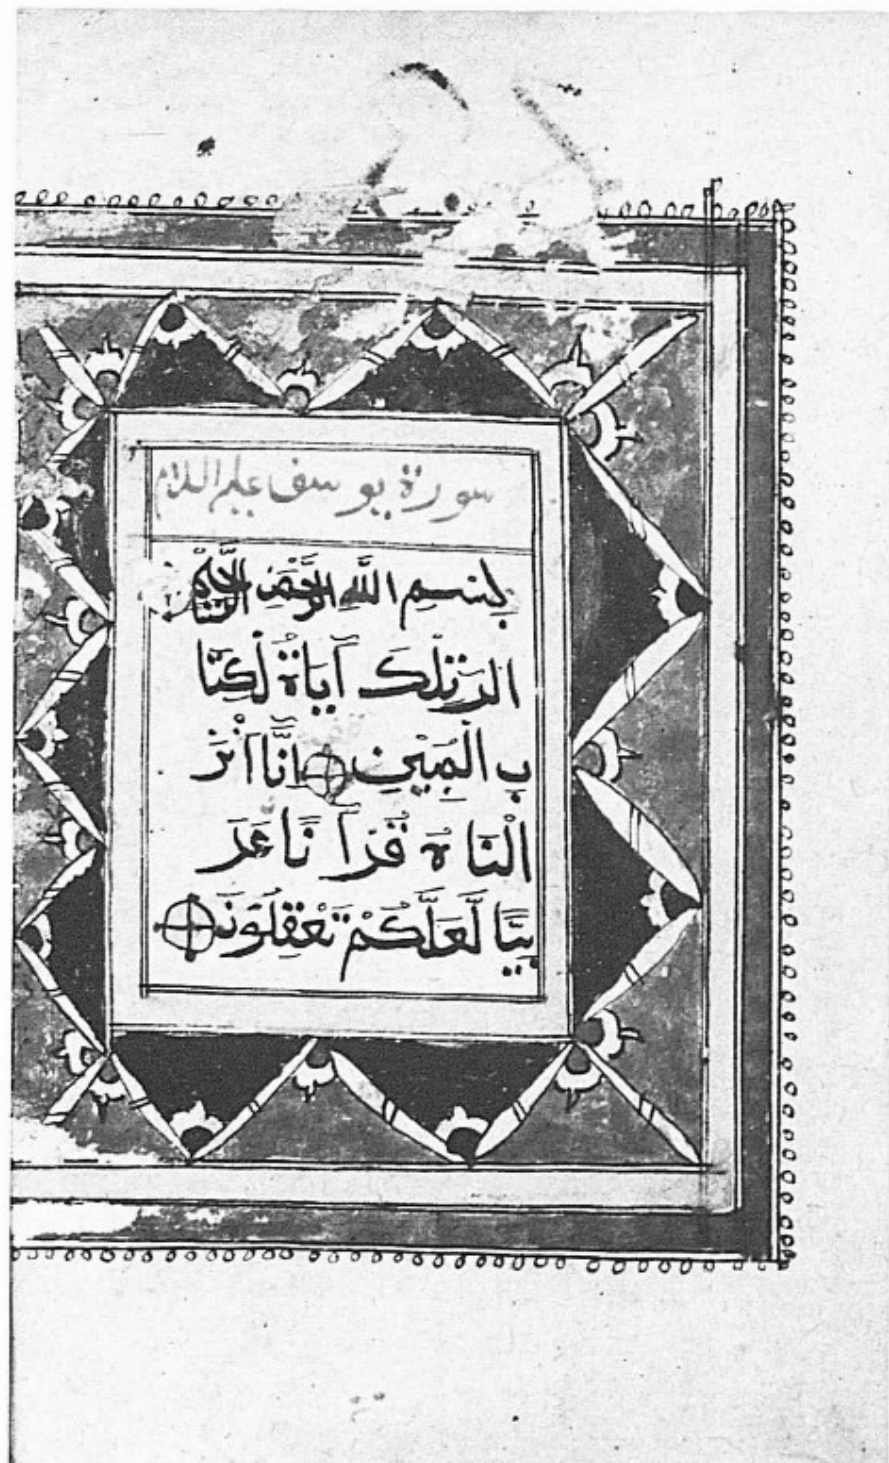 سورة يوسف عليه السلام
بِسْمِ اللَّهِ الرَّحْمَٰنِ الرَّحِيمِ
الر تِلْكَ آيَاةُ لْكِتَا
بِ الْمُبِيْنِ اِنَّا اَنْزَ
الْنَاهُ قُرْآنًا عَرَ
بِيًّا لَّعَلَّكُمْ تَعْقِلُوْنَ